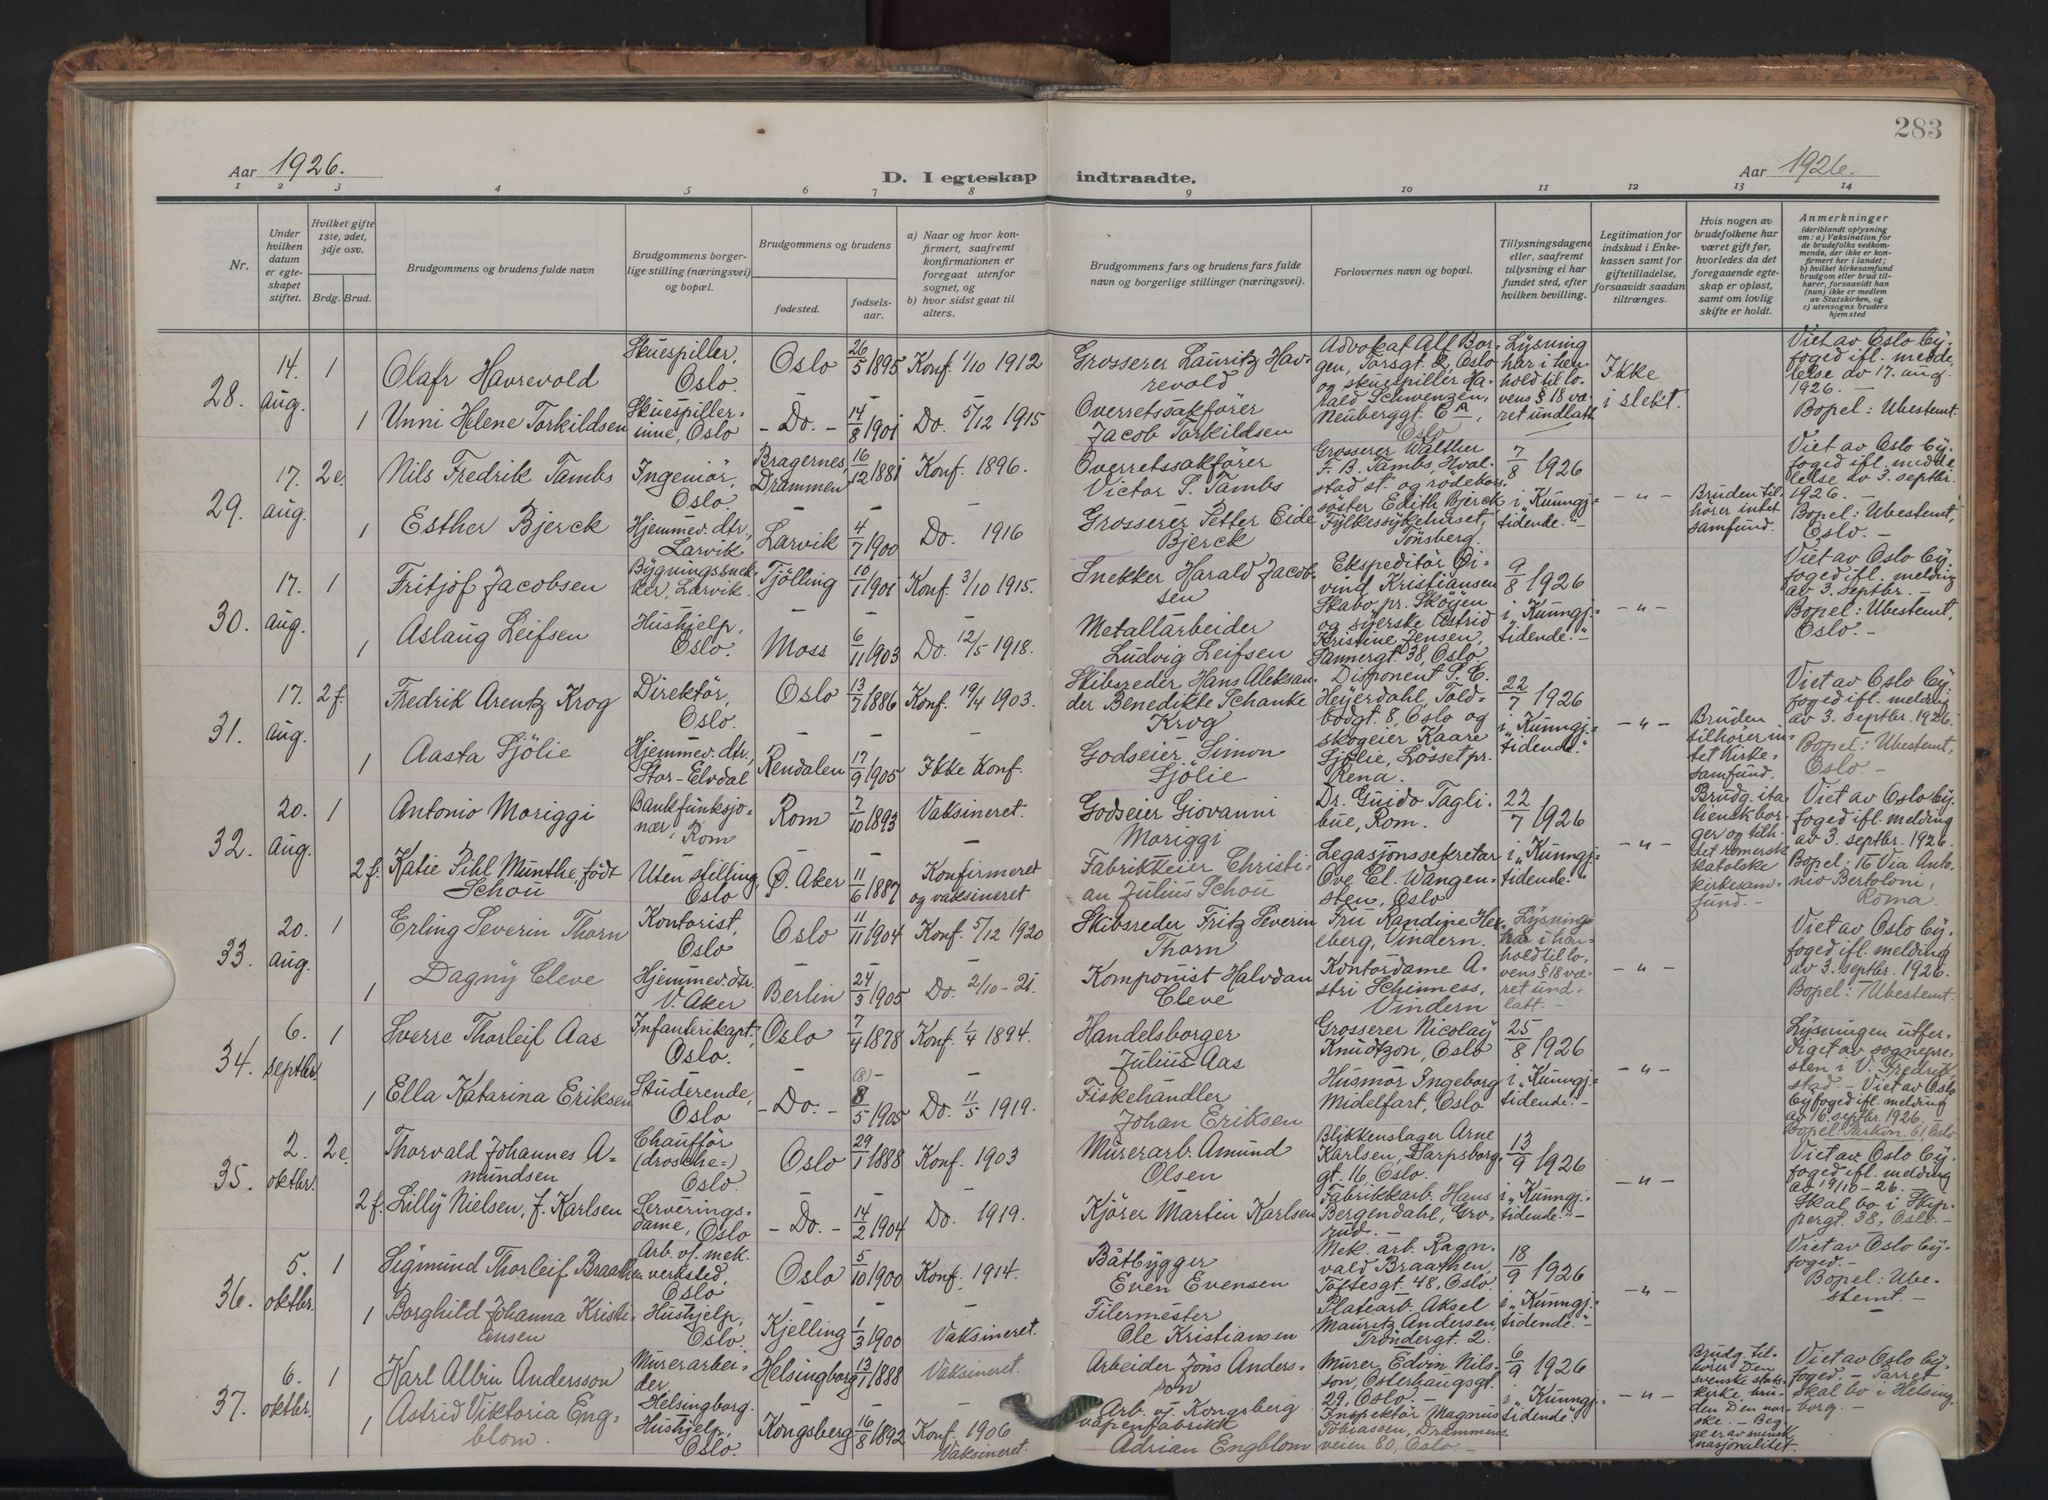 283
Aar 1926.
D. I egteskap indtraadte.
Aar 1926.
1 2 3 4 5 6 7 8 9 10 11 12 13 14
Nr.
Under hvilken datum er egteskapet stiftet.
Hvilket gifte 1ste, 2det, 3dje osv.
Brdg. Brud.
Brudgommens og brudens fulde navn
Brudgommens borgerlige stilling (næringsvei) og bopæl.
Brudgommens og brudens
fødested.
fødselsaar.
a) Naar og hvor konfirmert, saafremt konfirmationen er foregaat utenfor sognet, og
b) hvor sidst gaat til alters.
Brudgommens fars og brudens fars fulde navn og borgerlige stillinger (næringsvei).
Forlovernes navn og bopæl.
Tillysningsdagene eller, saafremt tillysning ei har fundet sted, efter hvilken bevilling.
Legitimation for indskud i Enkekassen samt for giftetilladelse, forsaavidt saadan tiltrænges.
Hvis nogen av brudefolkene har været gift før, hvorledes da det foregaaende egteskap er opløst, samt om lovlig skifte er holdt.
Anmerkninger
(deriblandt oplysning om: a) Vaksination for de brudefolks vedkommende, der ikke er konfirmert her i landet;
b) hvilket kirkesamfund brudgom eller brud tilhører, forsaavidt han (hun) ikke er medlem av Statskirken, og
c) utensogns bruders hjemsted
28. 14. aug. 1 Olafr Havrevold
Skuespiller, Oslo.
Oslo 26/5 1895 Konf. 1/10 1912
Grosserer Lauritz Havrevold
1 Unni Helene Torkildsen
Skuespillerinne, Oslo
- Do. - 14/8 1901 Do. 5/12 1915
Overretssakfører Jacob Torkildsen
Advokat Alf Borgen, Torsgt. 2, Oslo og skuespiller Harald Schwenzen, Neuberggt. 6 A, Oslo
Lysning har i henhold til lovens § 18 været undlatt
Ikke i slekt.
Viet av Oslo byfoged ifl. meddelelse av 17. aug. 1926. -
Bopel: Ubestemt.
29. 17. aug. 2e. Nils Fredrik Tambs
Ingeniør, Oslo.
Bragernes, Drammen 16/12 1881 Konf. 1896.
Overretssakfører Victor S. Tambs
1 Esther Bjerck
Hjemmev. dtr., Larvik
Larvik 4/7 1900 Do. 1916
Grosserer Petter Eide Bjerck
Grosserer Walther F. B. Tambs, Hvalstad st. og rødekorssøster Edith Bjerck Fylkessykehuset, Tønsberg.
7/8 1926 i "Kunngj.tidende." -
- " -
Bruden tilhører intet samfund.
Viet av Oslo byfoged ifl. meddelelse av 3. septbr. 1926. -
Bopel: Ubestemt, Oslo. -
30. 17. aug. 1 Fritjof Jacobsen
Bygningssnekker, Larvik.
Tjølling 16/1 1901 Konf. 3/10 1915.
Snekker Harald Jacobsen
1 Aslaug Leifsen
Hushjelp, Oslo.
Moss 6/11 1903 Do. 12/5 1918.
Metallarbeider Ludvig Leifsen
Ekspeditør Øivind Kristiansen Skabo pr. Skøyen og syerske Astrid Kristine Jensen, Sannergt. 38, Oslo
9/8 1926 i "Kunngj.tidende." -
- " -
Viet av Oslo byfoged ifl. melding av 3. septbr. -
Bopel: Ubestemt, Oslo. -
31. 17. aug. 2f. Fredrik Arentz Krog
Direktør, Oslo.
Oslo 13/7 1886 Konf. 19/4 1903.
Skibsreder Hans Aleksander Benedikte Schanke Krog
1 Aasta Sjølie
Hjemmev. dtr., Stor-Elvdal
Rendalen 17/9 1905 Ikke Konf.
Godseier Simon Sjølie
Disponent S. E. Heyerdahl, Toldbodgt. 8, Oslo og skogeier Kaare Sjølie, Løsset pr. Rena.
22/7 1926 i "Kunngj.tidende."
- " -
Bruden tilhører intet kirkesamfund.
Viet av Oslo byfoged ifl. melding av 3. septbr. 1926.
Bopel: Ubestemt, Oslo. -
32. 20. aug. 1 Antonio Moriggi
Bankfunksjonær, Rom
Rom 7/10 1893 Vaksineret.
Godseier Giovanni Moriggi
2f. Katie Sihl Munthe, født Schou
Uten stilling Oslo
Ø. Aker 11/6 1887 Konfirmeret og vaksineret
Fabrikkeier Christian Julius Schou
Dr. Guido Taglibue, Rom.
Legasjonssekretær Ove Cl. Wangensten, Oslo
22/7 1926 i "Kunngj.tidende."
- " -
Brudg. italiensk borger og tilh. det romersk katolske kirkesamfund. -
Viet av Oslo byfoged ifl. melding av 3. septbr. 1926.
Bopel: 16 Via Antonio Bertoloni, Roma.
33. 20. aug. 1 Erling Severin Thorn
Kontorist, Oslo
Oslo 11/11 1904 Konf. 5/12 1920
Skibsreder Fritz Severin Thorn
1 Dagny Cleve
Hjemmev. dtr. V. Aker
Berlin 24/3 1905 Do. 2/10 - 21.
Komponist Halvdan Cleve
Fru Randine Heeberg, Vindern.
Kontordame Astri Schinness, Vindern
Lysning har i henhold til lovens § 18 været undlatt. -
- " -
Viet av Oslo byfoged ifl. melding av 3. septbr. 1926.
Bopel: Ubestemt.
34. 6. septbr. 1 Sverre Thorleif Aas
Infanterikapt., Oslo.
Oslo 7/4 1878 Konf. 1/4 1894.
Handelsborger Julius Aas
1 Ella Katarina Eriksen
Studerende, Oslo
- Do. - (8) 8/5 1905 Do. 11/5 1919.
Fiskehandler Johan Eriksen
Grosserer Nicolay Knudtzon, Oslo
Husmor Ingeborg Midelfart, Oslo
25/8 1926 i "Kunngj.tidende." -
- " -
Lysningen utferdiget av sognepresten i V. Fredrikstad. - Viet av Oslo byfoged ifl. melding av 16 septbr. 1926. -
Bopel: Parkvn. 61, Oslo
35. 2. oktbr. 2e. Thorvald Johannes Amundsen
Chauffør (drosche=) Oslo.
Oslo 29/1 1888 Konf. 1903
Murerarb. Amund Olsen
2f. Lilly Nielsen, f. Karlsen
Serveringsdame, Oslo
- Do. - 14/2 1904 Do. 1919.
Kjører Martin Karlsen
Blikkenslager Arne Karlsen, Sarpsborggt. 16, Oslo.
Fabrikkarb. Hans Bergendahl, Grorud.
13/9 1926 i "Kunngj.tidende." -
- " -
Viet av Oslo byfoged ifl. melding av 19/10 - 26. -
Skal bo i Skippergt. 38, Oslo. -
36. 5. oktbr. 1 Sigmund Thorleif Braathen
Arb. v/ mek. verksted, Oslo
Oslo 5/10 1900 Konf. 1914.
Båtbygger Even Evensen
1 Borghild Johanna Kristiansen
Hushjelp, Oslo.
Kjelling 1/3 1900 Vaksineret.
Filermester Ole Kristiansen
Mek. arb. Ragnvald Braathen, Toftesgt. 48, Oslo.
Platearb. Aksel Mauritz Andersen, Trøndergt. 2.
18/9 1926 i "Kunngj.tidende." -
- " -
Viet av Oslo byfoged. -
Bopel: Ubestemt. -
37. 6. oktbr. 1 Karl Albin Andersson
Murerarbeider, Helsingborg.
Helsingborg 13/1 1888 Vaksineret.
Arbeider Jöns Andersson
1 Astrid Viktoria Engblom.
Hushjelp, Oslo.
Kongsberg 16/8 1892 Konf. 1906 Vaksineret.
Arb. v/ Kongsberg våpenfabrikk Adrian Engblom
Murer Edvin Nilsson, Osterhausgt. 29, Oslo. -
Inspektør Magnus Tobiassen, Drammensveien 80, Oslo -
6/9 1926 i "Kunngj.tidende."
- " -
Brudg. tilhører Den svenske statskirke, bruden Den norske. - Begge er av svensk nasjonalitet.
Viet av Oslo byfoged. - Parret skal bo i Helsingborg. -